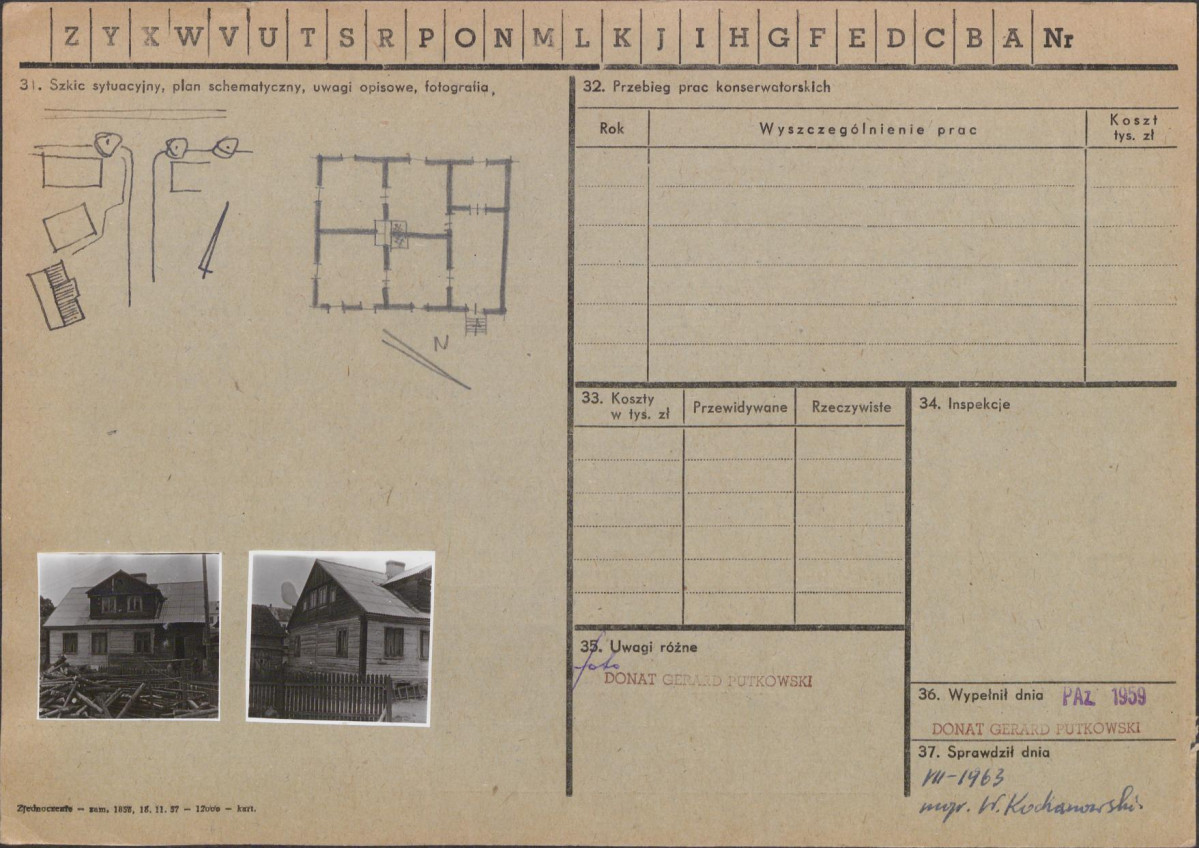 Z Y X W V U T S R P O N M L K J I H G F E D C B A Nr
31. Szkic sytuacyjny, plan schematyczny, uwagi opisowe, fotografia,
N
32. Przebieg prac konserwatorskich
Rok Wyszczególnienie prac Koszt tys. zł
33. Koszty w tys. zł Przewidywane Rzeczywiste
34. Inspekcje
35. Uwagi różne
foto
DONAT GERARD PUTKOWSKI
36. Wypełnił dnia PAŹ 1959
DONAT GERARD PUTKOWSKI
37. Sprawdził dnia
VII-1963
mgr. W. Kochanowski
Zjednoczenie — zam. 1858, 18. 11. 57 — 12000 — kart.